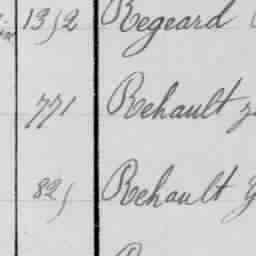 1352 Regeard
771 Rehault
825 Rehault